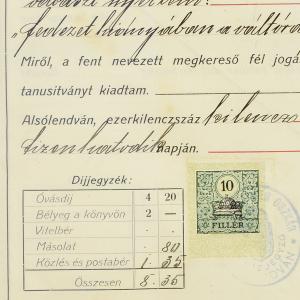 "fedezet hiányában a váltóra
Miről, a fent nevezett megkereső fél jogá
tanusitványt kiadtam.
Alsólendván, ezerkilenczszáz kilencz
tizenhatodik napján.
Dijjegyzék:
Óvásdij 4 20
Bélyeg a könyvön 2 —
Vitelbér . .
Másolat . 80
Közlés és postabér 1 35
Összesen 8 35
10
FILLÉR